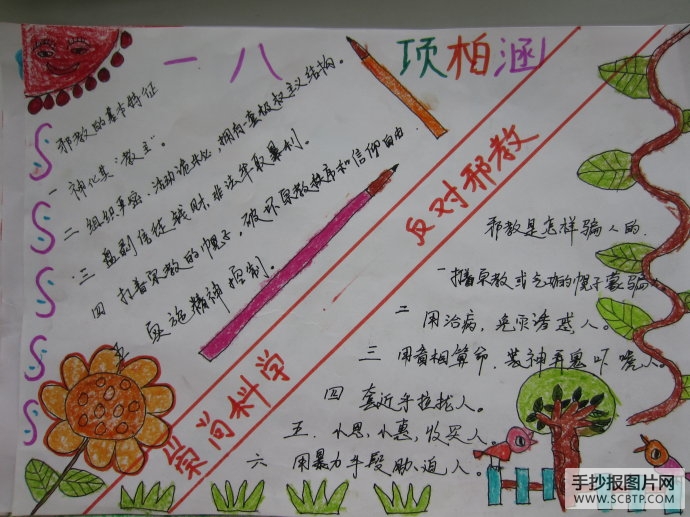 一八 项柏涵
邪教的基本特征
一 神化其“教主”。
二 组织严密,活动诡米必,拥有一套极权主义结构。
三 盘剥信徒钱财,非法牟取暴利。
四 打着宗教的幌子,破坏宗教秩序和信仰自由
五 实施精神控制。
崇尚科学 反对邪教
邪教是怎样骗人的.
一 打着宗教或气功的幌子蒙骗
二 用治病,免灾诱惑人。
三 用看相算命,装神弄鬼吓唬人。
四 套近乎拉拢人。
五.小恩,小惠,收买人。
六 用暴力手段胁迫人。
手抄报图片网
WWW.SCBTP.COM